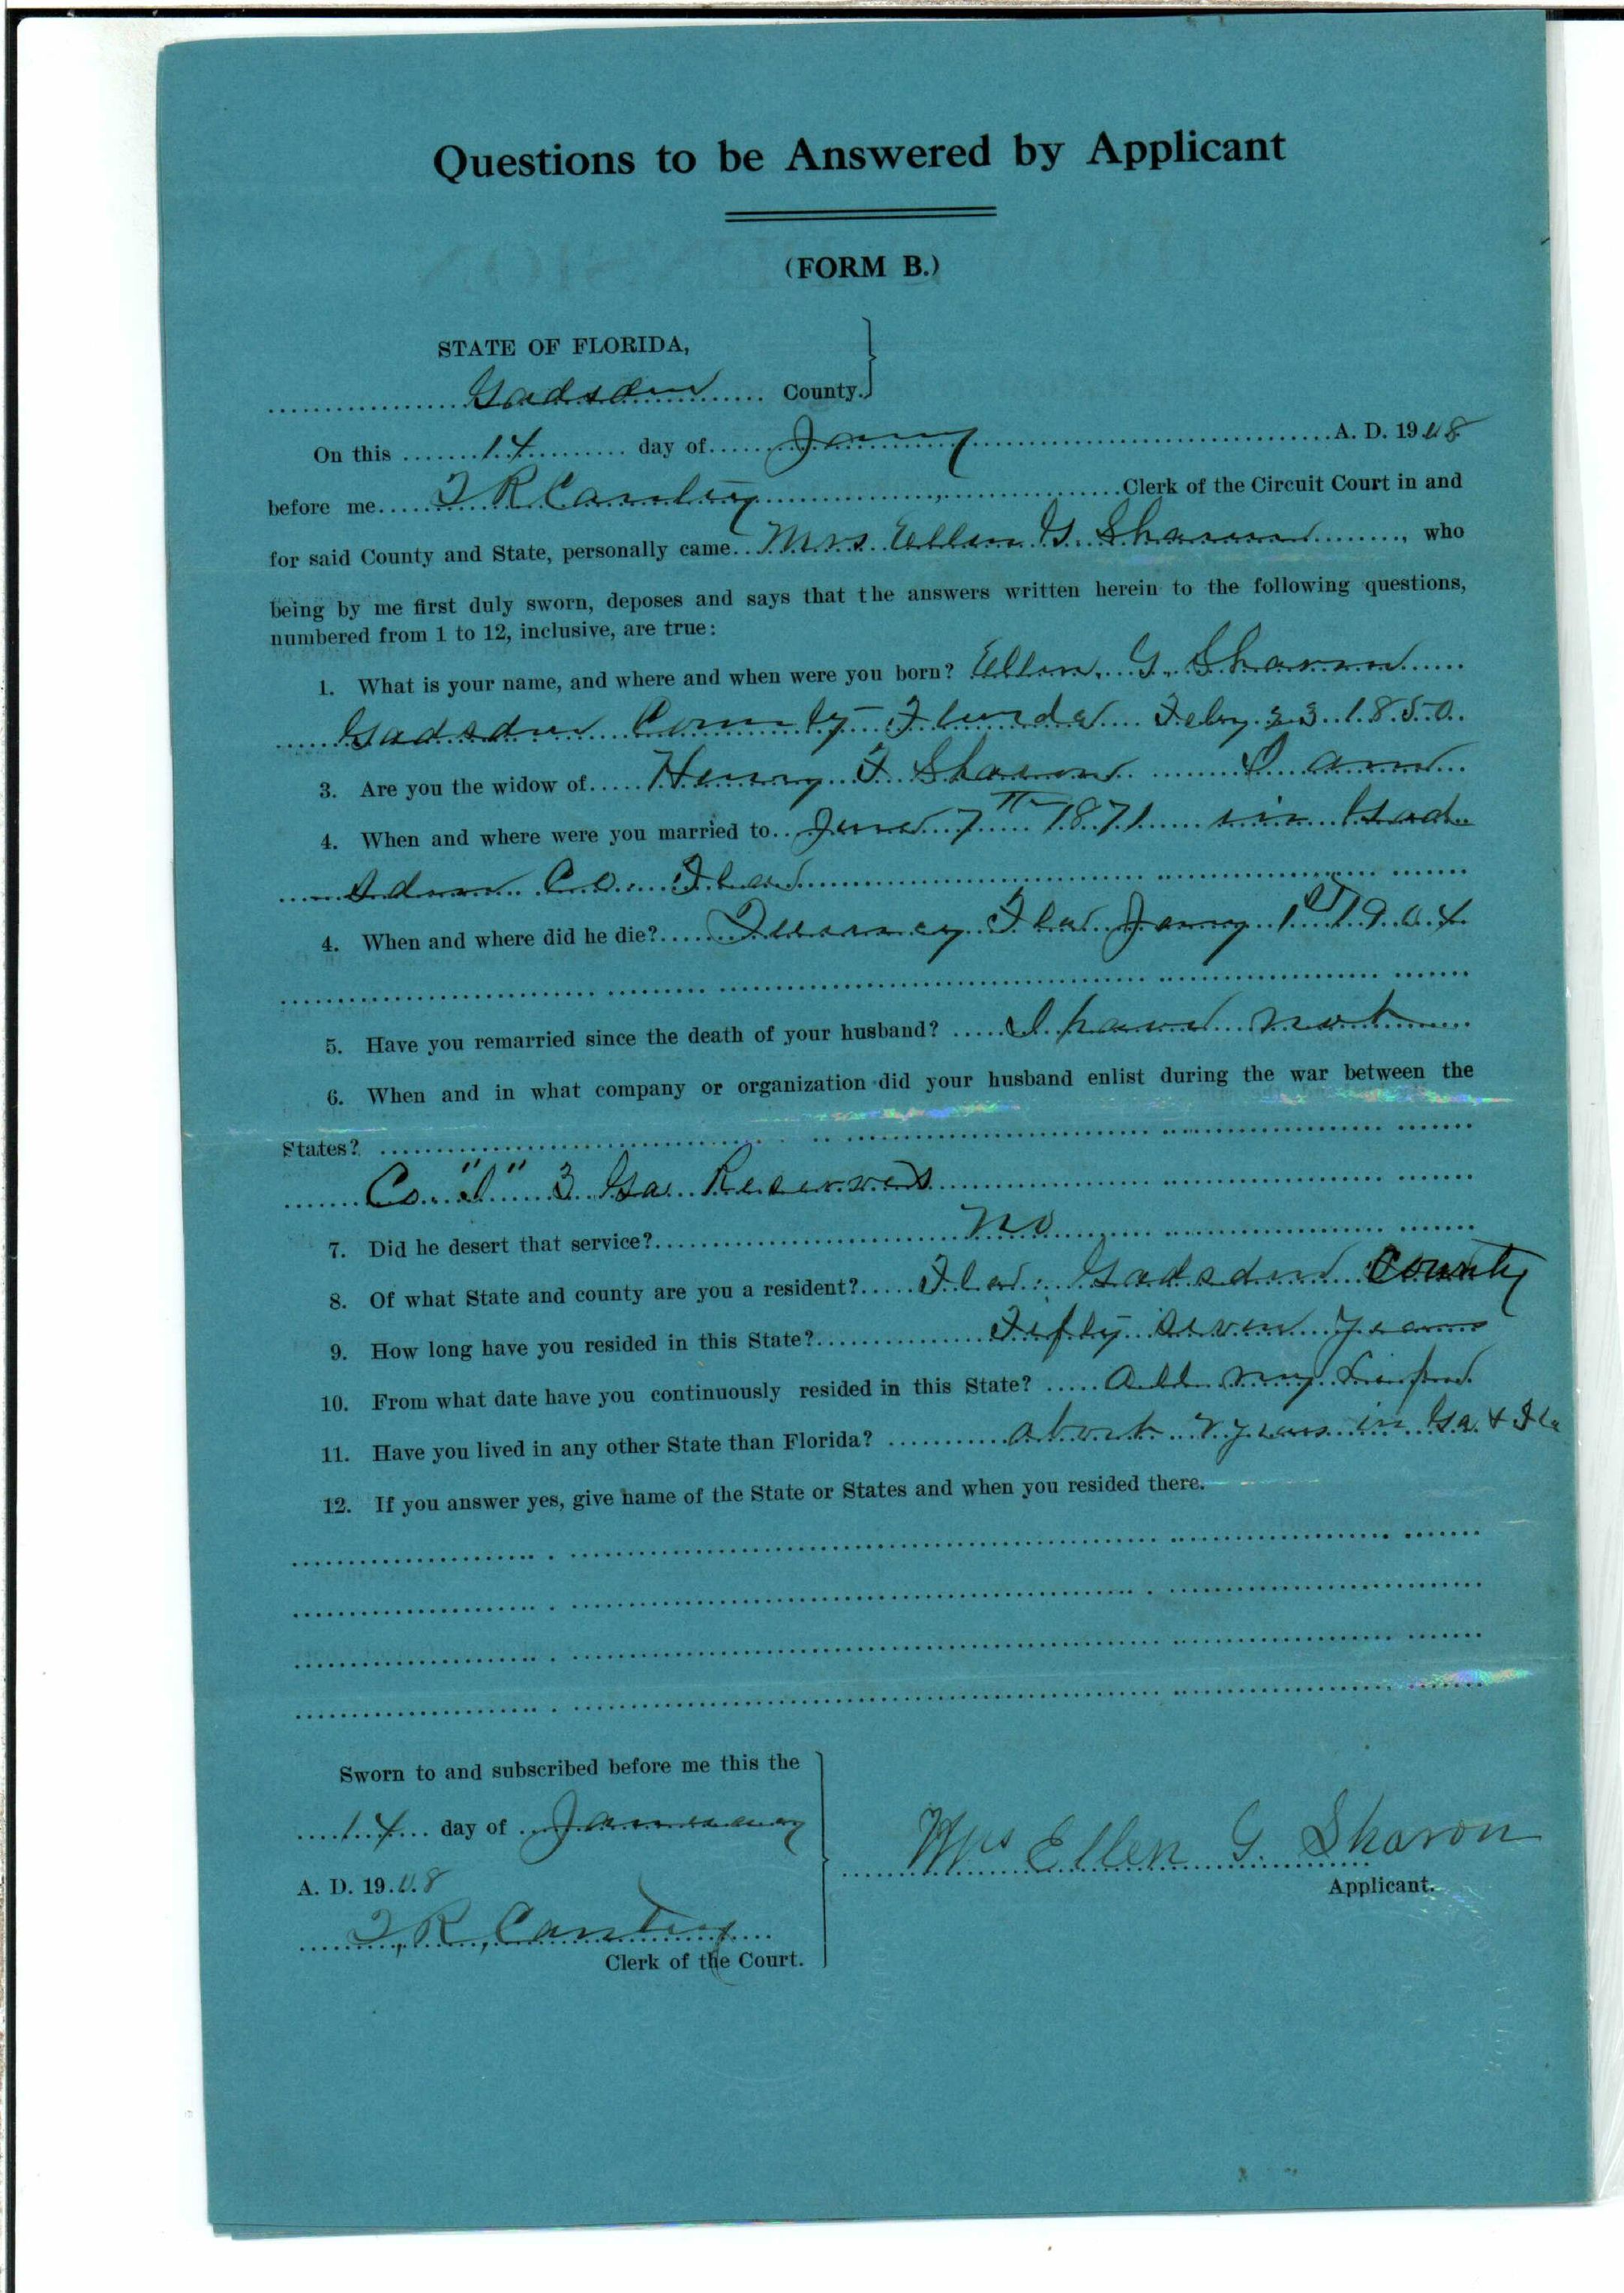 Questions to be Answered by Applicant
(FORM B.)
STATE OF FLORIDA,
Gadsden County.
On this 14 day of Jany A. D. 1908
before me T R Cantey Clerk of the Circuit Court in and
for said County and State, personally came Mrs Ellen G. Sharon, who
being by me first duly sworn, deposes and says that the answers written herein to the following questions,
numbered from 1 to 12, inclusive, are true:
1. What is your name, and where and when were you born? Ellen G. Sharon
Gadsden County Florida Feby 23 1850
3. Are you the widow of Henry F Sharon I am
4. When and where were you married to June 7th 1871 in Gad
sden Co. Fla
4. When and where did he die? Quincy Fla Jany 1st 1904
5. Have you remarried since the death of your husband? I have not
6. When and in what company or organization did your husband enlist during the war between the
States?
Co. "I" 3 Ga Reserves
7. Did he desert that service? No
8. Of what State and county are you a resident? Fla. Gadsden County
9. How long have you resided in this State? Fifty seven years
10. From what date have you continuously resided in this State? All my life
11. Have you lived in any other State than Florida? about 2 years in Ga & Fla
12. If you answer yes, give name of the State or States and when you resided there.
Sworn to and subscribed before me this the
14 day of January
A. D. 1908
T, R, Cantey
Clerk of the Court.
Mrs Ellen G. Sharon
Applicant.